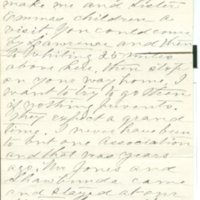 make me and Sister
Emmas children a
visit You could come
by Lawrence and then
to Whiting 30 miles
above here, then stop
on your way home. I
want to try to go then
if nothing prevents.
They expect a grand
time. I never have been
to but one Association
and that was years
ago. Mr Jones and
came
and stayed at our